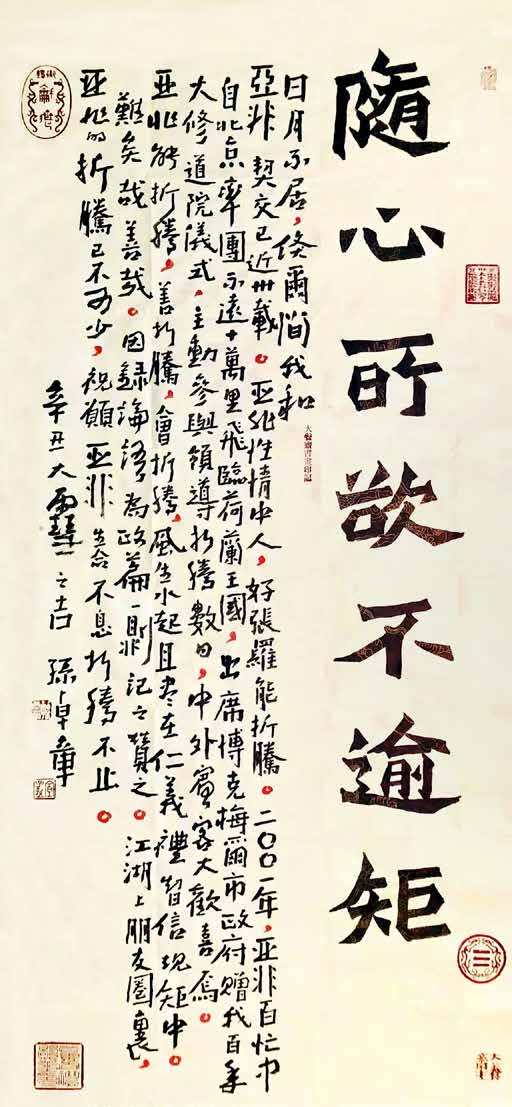 隨心所欲不逾矩
日月不居,倏爾間我和
亞非契交已近卅載。亞非性情中人,好張羅能折騰。二〇〇一年,亞非百忙中
自北京率團不遠十萬里飛臨荷蘭王國,出席博克梅爾市政府贈我百年
大修道院儀式,主動參與領導折騰數日,中外賓客大歡喜焉。
亞非能折騰,善折騰,會折騰,風生水起且盡在仁義禮智信規矩中。
難矣哉善哉。因錄論語為政篇一則記之贊之。江湖上朋友圈裏,
亞非的折騰已不可少,祝願亞非生命不息折騰不止。
辛丑大 之吉 孫卓章